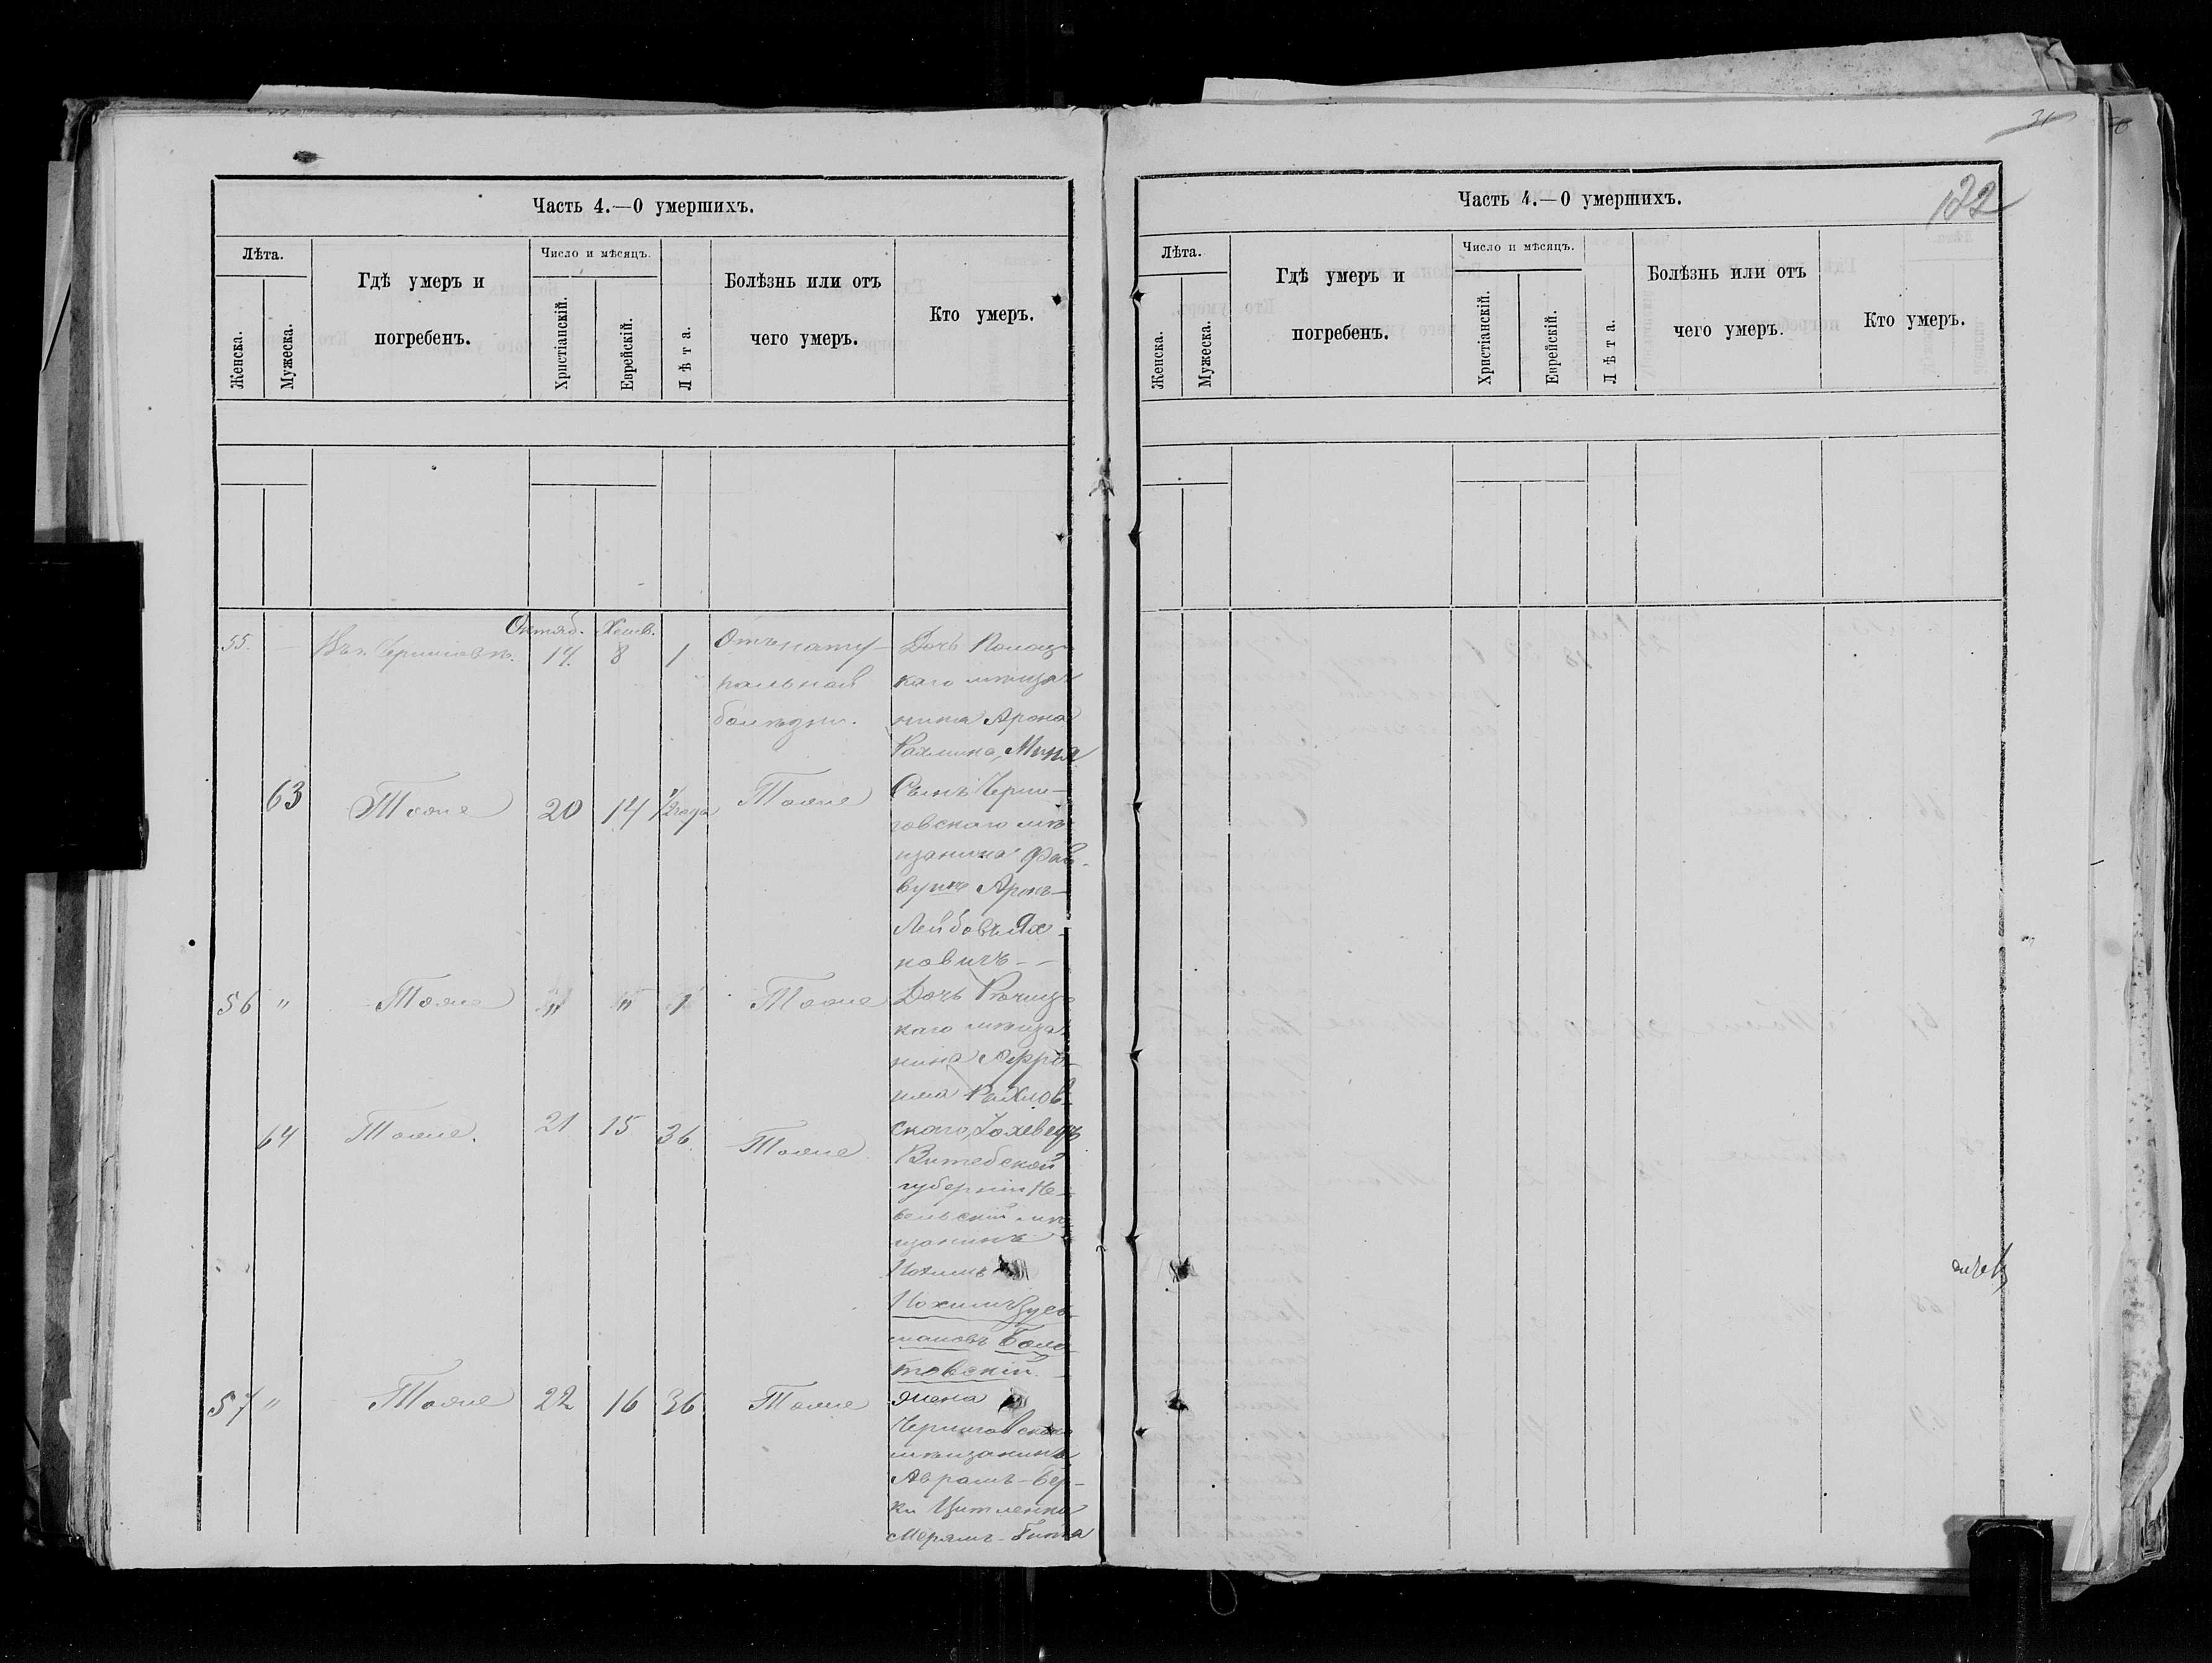 Часть 4.—О умершихъ.
Лѣта.
Женска.
Мужеска.
Гдѣ умеръ и
погребенъ.
Число и мѣсяцъ.
Христіанскій.
Еврейскій.
Лѣта.
Болѣзнь или отъ
чего умеръ.
Кто умеръ.
55. — Въ г. Черниговѣ. Октяб. 14. Хешв. 8 1 Отъ нату-
ральной
болѣзни.
Дочь Полоц-
каго мѣща-
нина Арона
Рахлина, Мина
63 Тоже 20 14 1/2 года Тоже
Сынъ Черни-
говскаго мѣ-
щанина
Аронъ-
Лейбовъ Ях-
новичъ —
56 " Тоже " " 1 Тоже
Дочь Рѣчиц-
каго мѣща-
нина Эфро-
има
скаго, Іохеведъ
64 Тоже. 21 15 36. Тоже
Витебской
губерніи Не-
вельскій мѣ-
щанинъ
Нохимъ
Нохимъ Зусь-
мановъ Боло-
товскій.
57 " Тоже 22 16 36 Тоже
Жена
Черниговскаго
мѣщанина
Аврамъ-Бер-
ки Цитленка
Мерямъ-Гитта
31
122
Часть 4.—О умершихъ.
Лѣта.
Женска.
Мужеска.
Гдѣ умеръ и
погребенъ.
Число и мѣсяцъ.
Христіанскій.
Еврейскій.
Лѣта.
Болѣзнь или отъ
чего умеръ.
Кто умеръ.